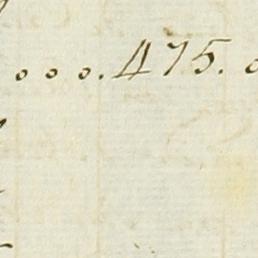 o o o . 475. o